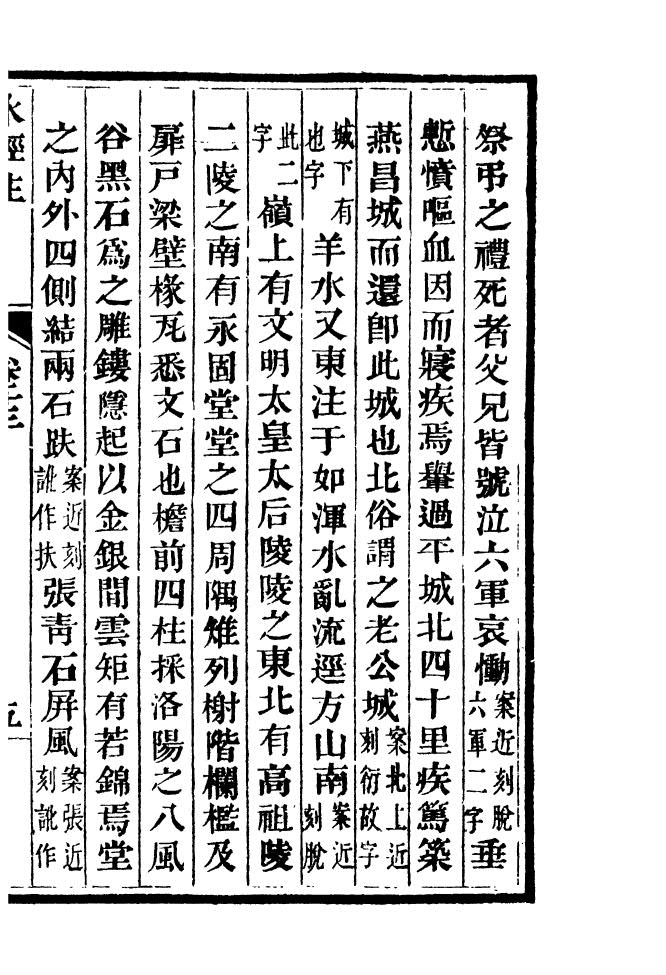 祭弔之禮死者父兄皆號泣六軍哀慟案近刻脫六軍二字垂
慙憤嘔血因而寢疾焉轝過平城北四十里疾篤築
燕昌城而還卽此城也北俗謂之老公城案北上近刻衍故字
城下有也字羊水又東注于如渾水亂流逕方山南案近刻脫
此二字嶺上有文明太皇太后陵陵之東北有高祖陵
二陵之南有永固堂堂之四周隅雉列榭階欄檻及
扉戶梁壁椽瓦悉文石也檐前四柱採洛陽之八風
谷黑石爲之雕鏤隱起以金銀間雲矩有若錦焉堂
之內外四側結兩石趺案近刻訛作扶張靑石屏風案張近刻訛作
水經注 卷十三 五